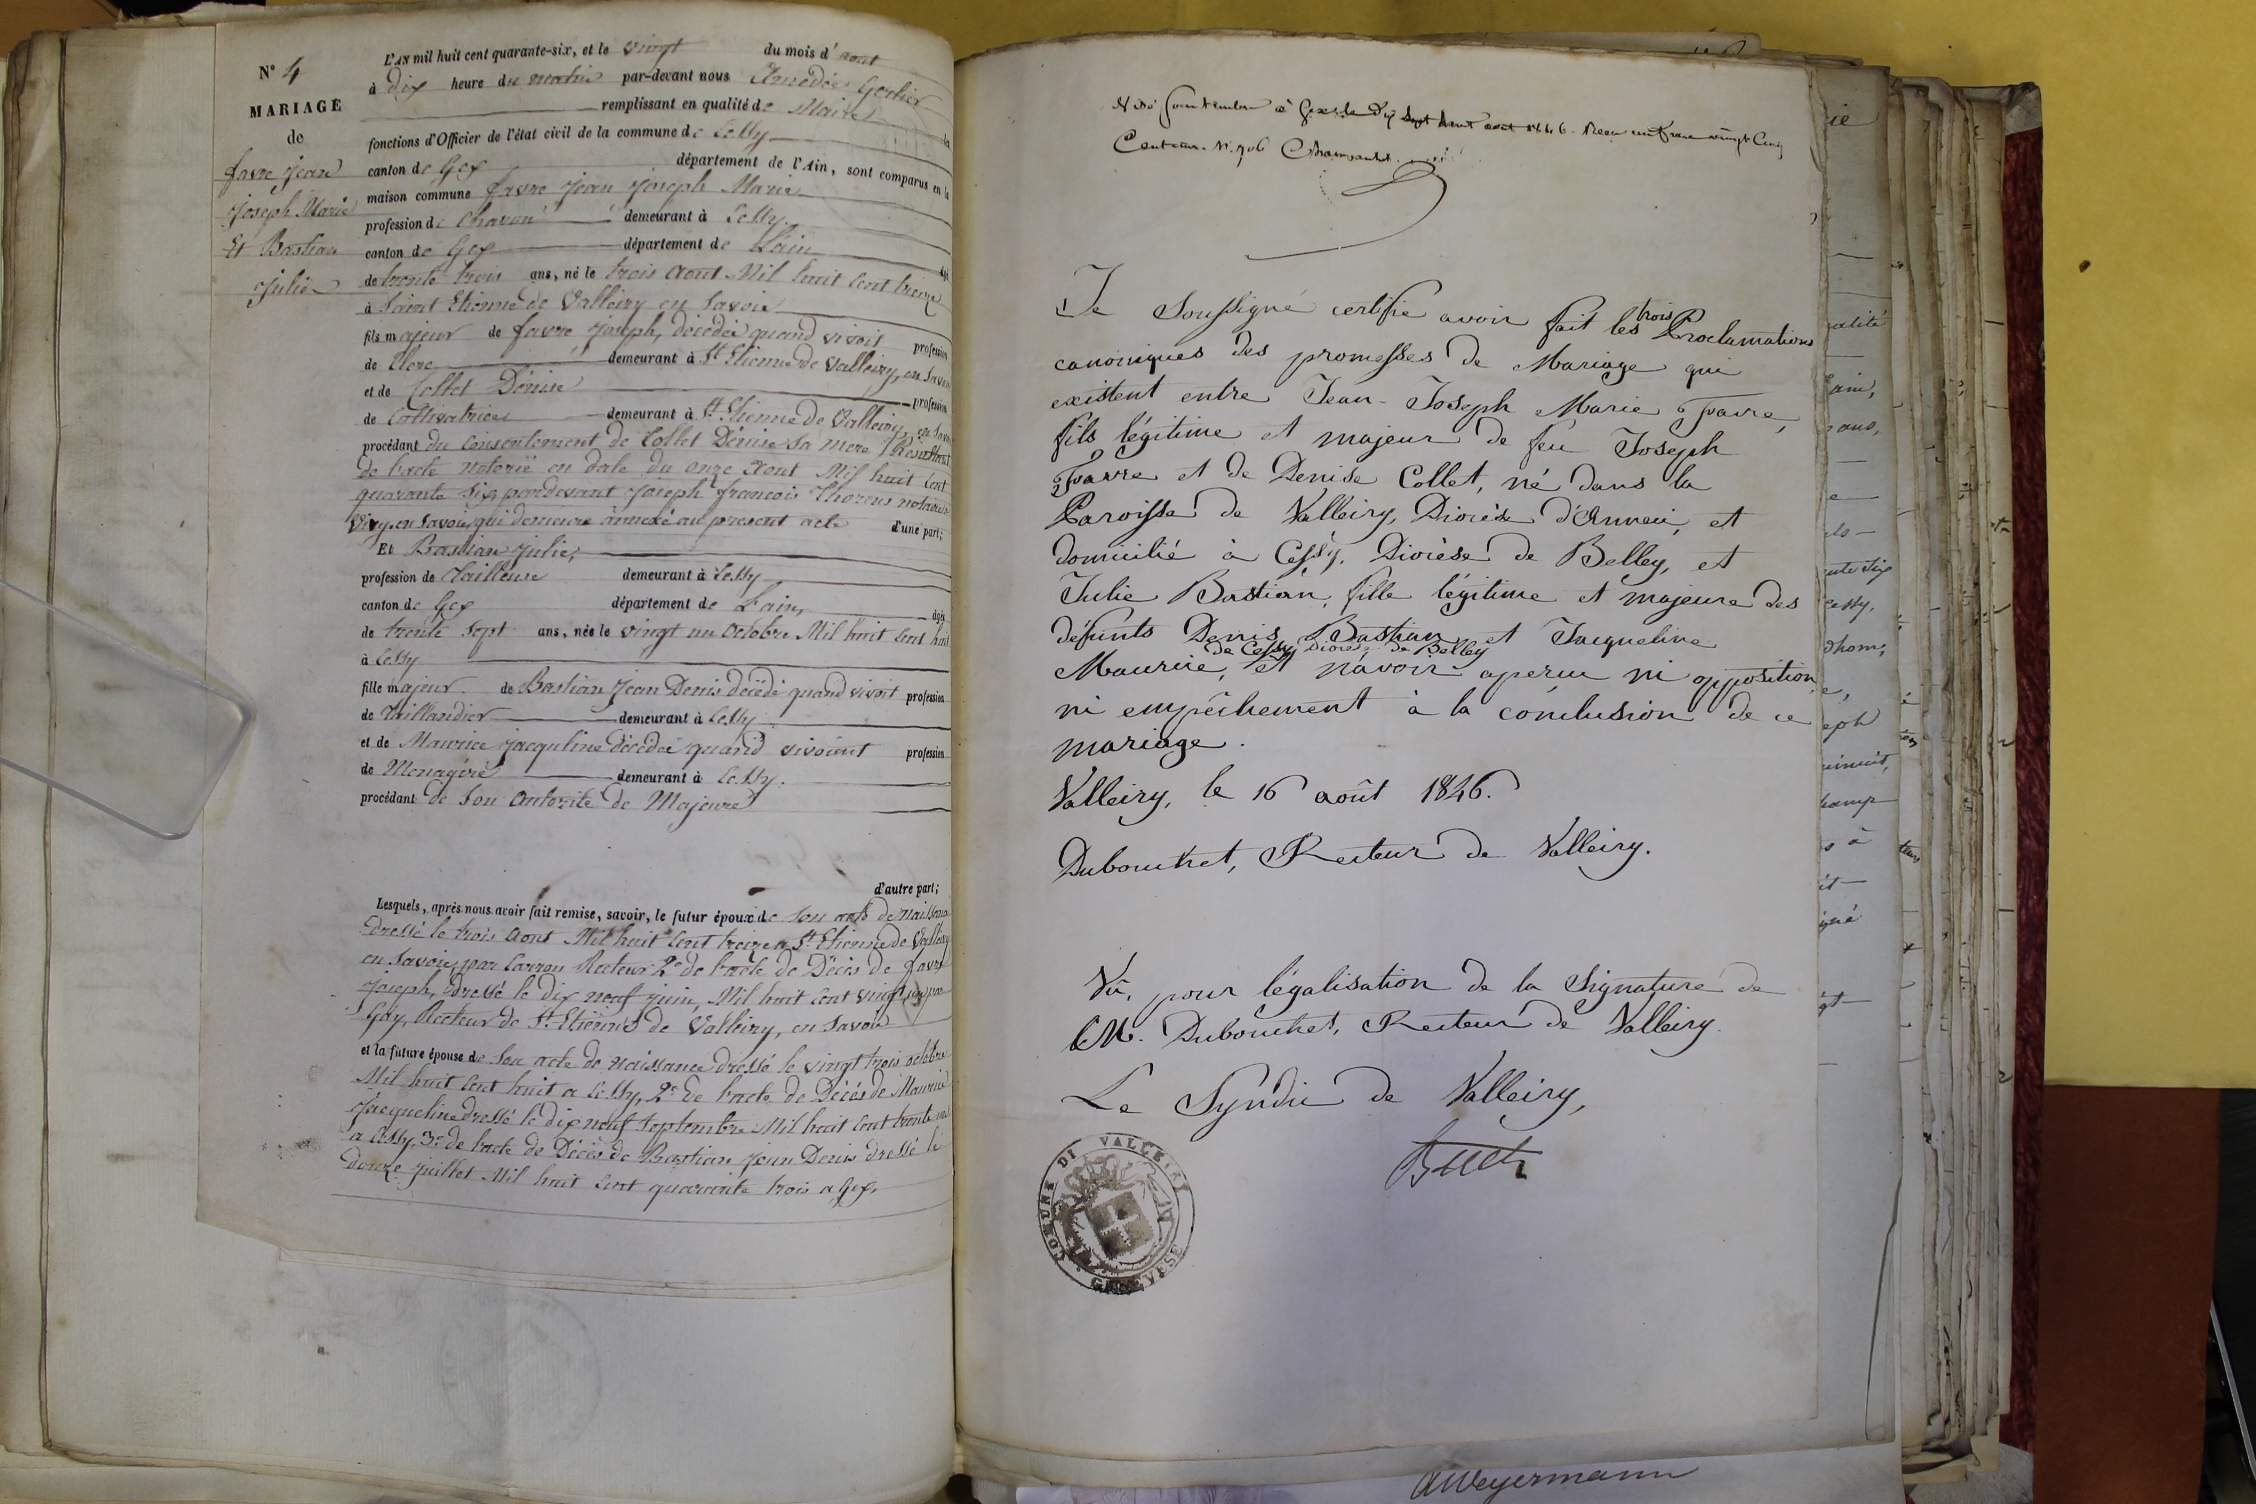 N° 4
MARIAGE
de
favre Jean
Joseph Marie
Et Bastian
Julie
L'AN mil huit cent quarante-six, et le vingt du mois d'aout
à dix heure du matin par-devant nous Amédée
remplissant en qualité de Maire la
fonctions d'Officier de l'état civil de la commune de Cessy
canton de Gex département de l'Ain, sont comparus en la
maison commune favre Jean Joseph Marie
profession de Charon demeurant à Cessy
canton de Gex département de L'ain âgé
de trente trois ans, né le trois aout Mil huit Cent treize
à Saint Etienne de Valleiry en Savoie
fils majeur de favre Joseph, décédée quand vivoit profession
de demeurant à St Etienne de Valleiry, en Savoie
et de Collet Dénise profession
de Cultivatrice demeurant à St Etienne de Valleiry, en Savoie
procédant du Consentement de Collet Dénise sa mere Résultant
de l'acte notorié en date du onze Aout Mil huit Cent
quarante six, pardevant Joseph francois Thorens notaire à
Viry, en Savoie, qui demeure annexé au present acte d'une part;
Et Bastian Julie,
profession de Tailleuse demeurant à Cessy
canton de Gex département de L'ain, âgée
de trente sept ans, née le vingt un Octobre Mil huit Cent huit
à Cessy
fille majeur de Bastian Jean Denis décédé quand vivoit profession
de Taillandier demeurant à Cessy
et de Maurice Jacquline décédée quand vivoient profession
de Menagère demeurant à Cessy.
procédant de Son Autorité de Majeure
d'autre part;
Lesquels, après nous avoir fait remise, savoir, le futur époux de Son acte de naissance
Dressé le trois Aout Mil huit Cent treize a St Etienne de Valleiry
en Savoie, par Carron Recteur 2e de l'acte de Décès de favre
Joseph, dressé le dix neuf juin, Mil huit Cent vingt par
Gay, Recteur de St Etienne de Valleiry, en Savoie
et la future épouse de Son acte de naissance dressé le vingt trois octobre
Mil huit Cent huit a Cessy, 2e de l'acte de Décés de Maurice
Jacqueline dressé le dix neuf Septembre Mil huit Cent trente
a Cessy, 3e de l'acte de Décés de Bastian Jean Denis dressé le
Douze juillet Mil huit Cent quarante trois a Gex,
à Gex le Dix aout 1846. Recu un franc vingt Cinq
Centimes
Je Soussigné certifie avoir fait les trois Proclamations
canoniques des promesses de Mariage qui
existent entre Jean-Joseph Marie Favre,
fils légitime et majeur de feu Joseph
Favre et de Denise Collet, né dans la
Paroisse de Valleiry, Diocèse d'Anneci, et
domicilié à Cessy, Diocèse de Belley, et
Julie Bastian, fille légitime et majeure des
défunts Denis Bastian et Jacqueline
Maurice, de Cessy Diocèse de Belley et n'avoir aperçu ni opposition
ni empêchement à la conclusion de ce
mariage.
Valleiry, le 16 août 1846.
Dubouchet, Recteur de Valleiry.
Vû, pour légalisation de la Signature de
M. Dubouchet, Recteur de Valleiry.
Le Syndic de Valleiry,
COMUNE DI VALLEIRY
GENEVESE
AWeyermann